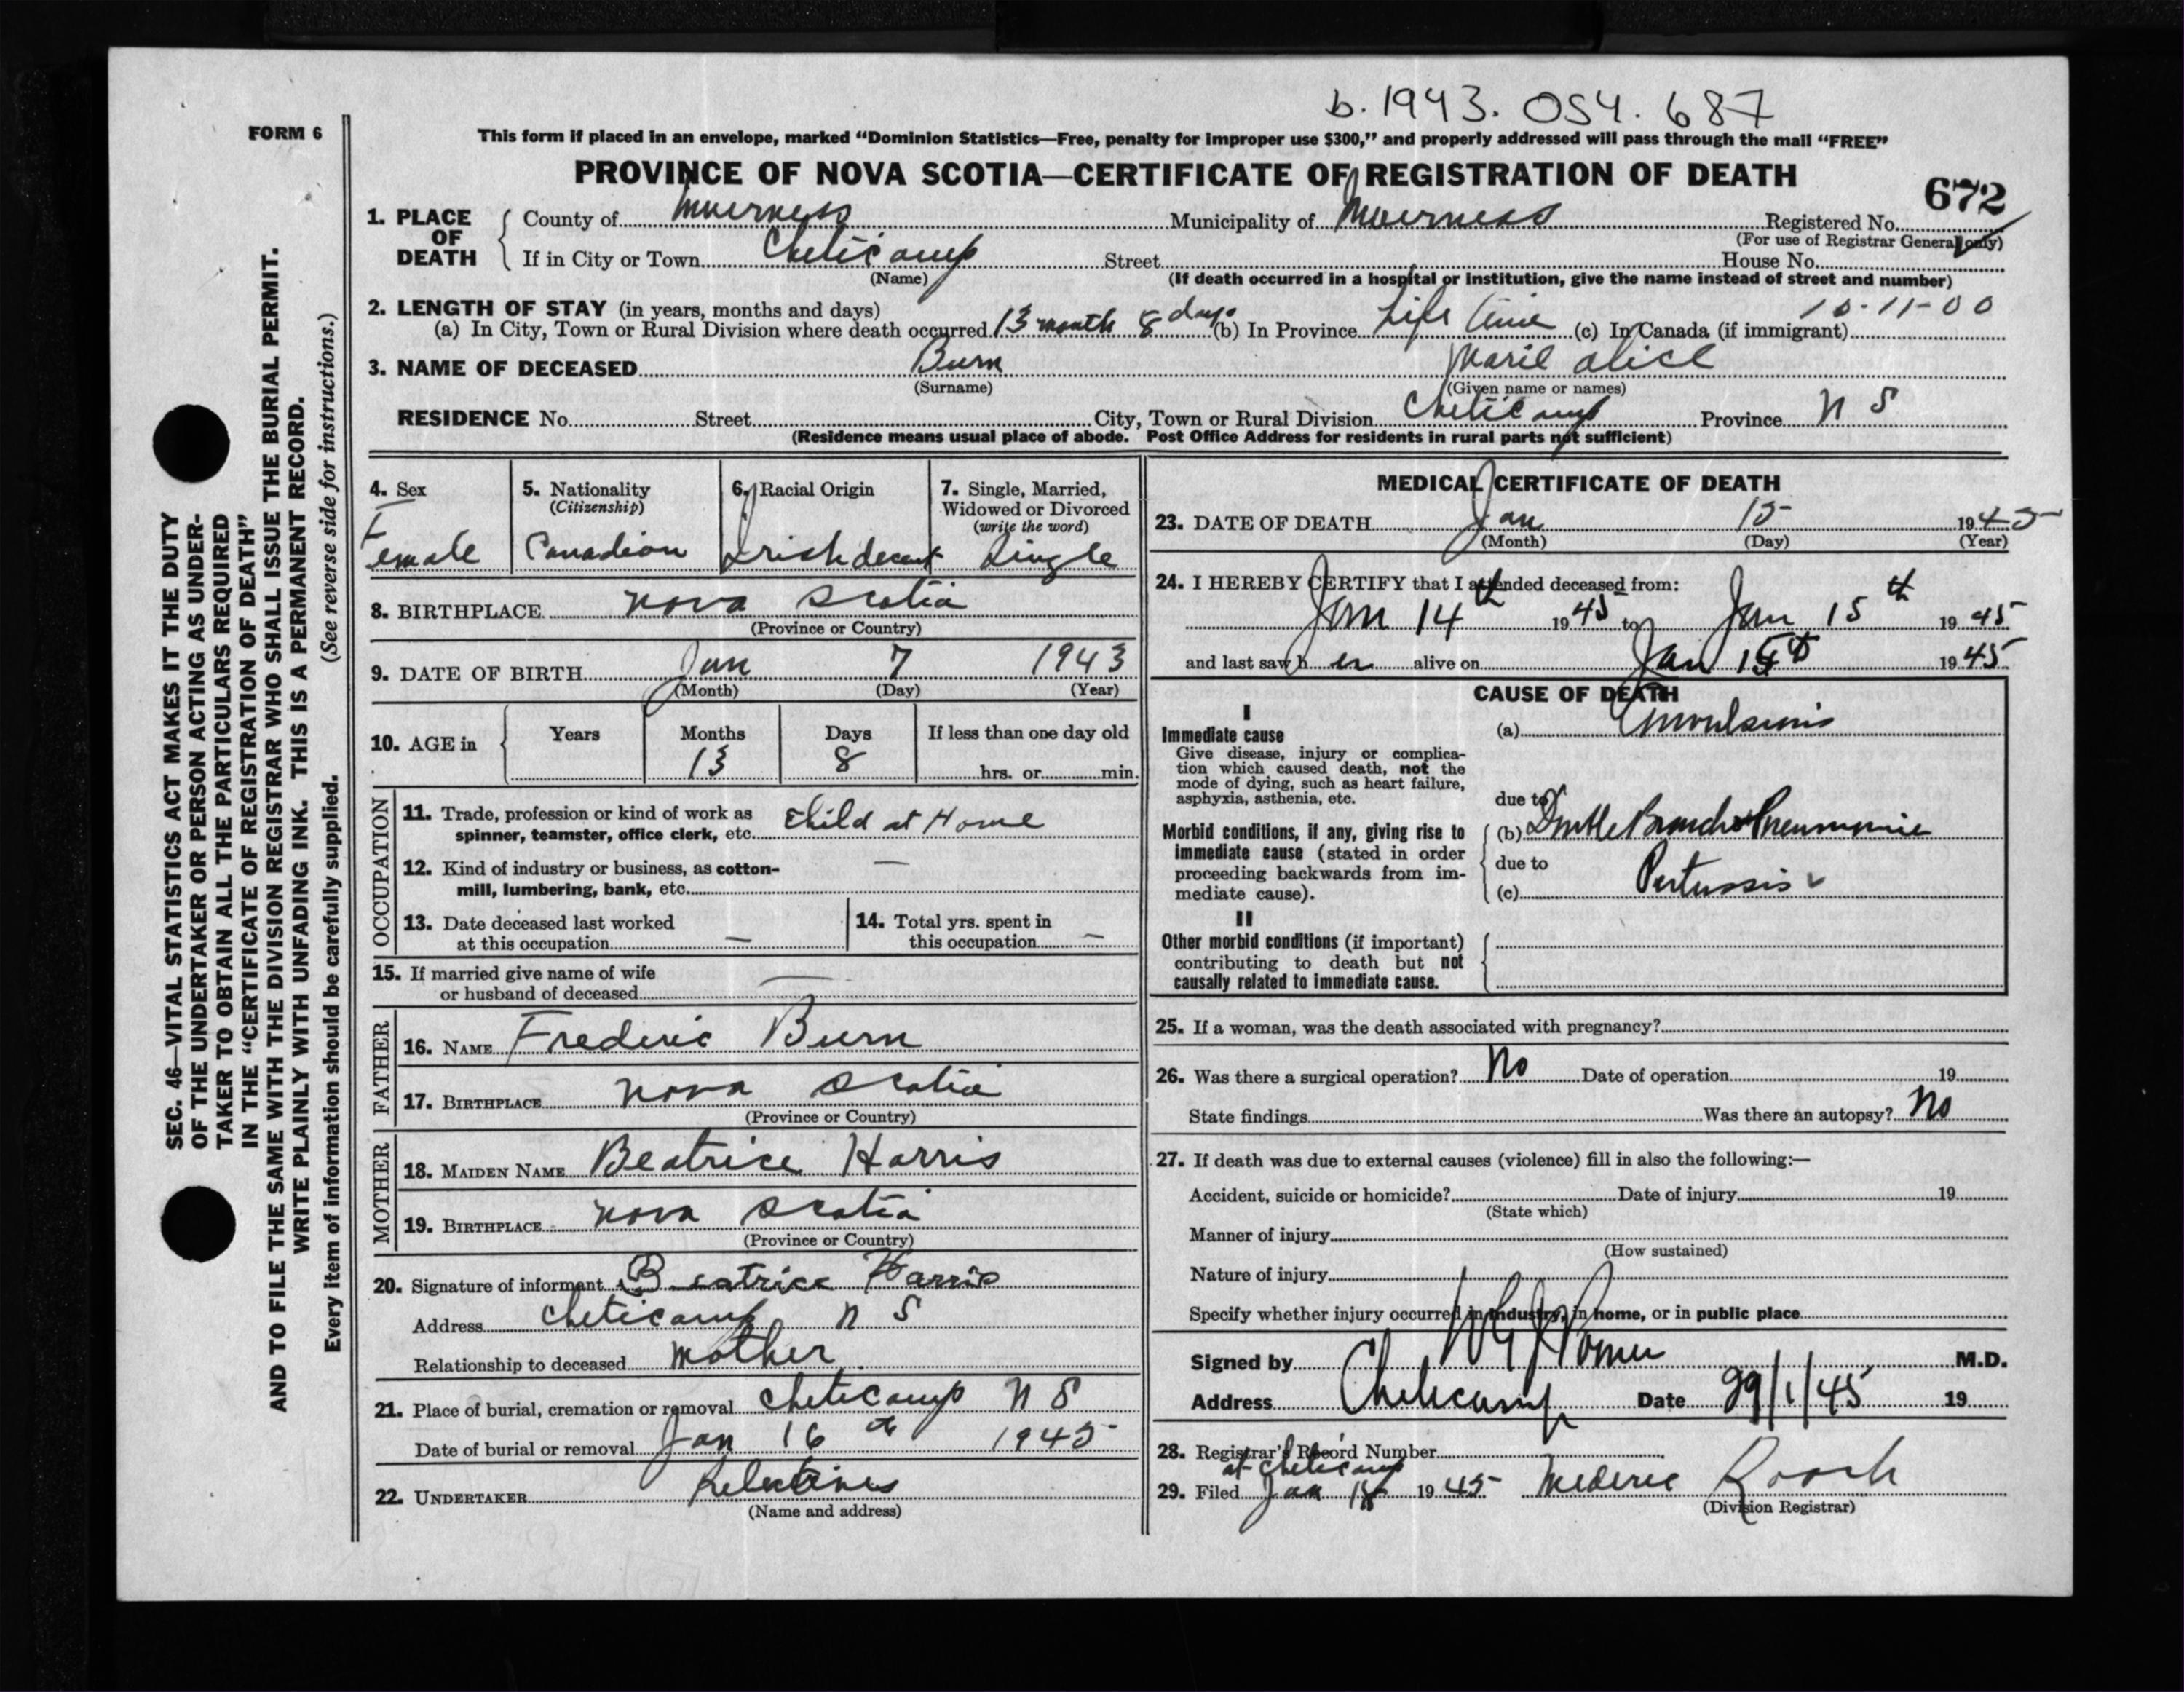 b. 1943. 054. 687
FORM 6
This form if placed in an envelope, marked “Dominion Statistics—Free, penalty for improper use $300,” and properly addressed will pass through the mail “FREE”
PROVINCE OF NOVA SCOTIA—CERTIFICATE OF REGISTRATION OF DEATH
672
1. PLACE OF DEATH
County of Inverness Municipality of Inverness Registered No.
(For use of Registrar General only)
If in City or Town Cheticamp Street House No.
(Name) (If death occurred in a hospital or institution, give the name instead of street and number)
2. LENGTH OF STAY (in years, months and days) 10-11-00
(a) In City, Town or Rural Division where death occurred 13 month 8 days (b) In Province Life time (c) In Canada (if immigrant)
3. NAME OF DECEASED Burn Marie Alice
(Surname) (Given name or names)
RESIDENCE No. Street City, Town or Rural Division Cheticamp Province N S
(Residence means usual place of abode. Post Office Address for residents in rural parts not sufficient)
4. Sex
Female
5. Nationality
(Citizenship)
Canadian
6. Racial Origin
Irish decent
7. Single, Married,
Widowed or Divorced
(write the word)
Single
8. BIRTHPLACE Nova Scotia
(Province or Country)
9. DATE OF BIRTH Jan 7 1943
(Month) (Day) (Year)
10. AGE in
Years Months Days If less than one day old
13 8 hrs. or min.
OCCUPATION
11. Trade, profession or kind of work as
spinner, teamster, office clerk, etc. Child at Home
12. Kind of industry or business, as cotton-
mill, lumbering, bank, etc. —
13. Date deceased last worked
at this occupation —
14. Total yrs. spent in
this occupation —
15. If married give name of wife
or husband of deceased —
FATHER
16. NAME Frederic Burn
17. BIRTHPLACE Nova Scotia
(Province or Country)
MOTHER
18. MAIDEN NAME Beatrice Harris
19. BIRTHPLACE Nova Scotia
(Province or Country)
20. Signature of informant Beatrice Harris
Address Cheticamp N S
Relationship to deceased Mother
21. Place of burial, cremation or removal Cheticamp N S
Date of burial or removal Jan 16 th 1945
22. UNDERTAKER Relatives
(Name and address)
MEDICAL CERTIFICATE OF DEATH
23. DATE OF DEATH Jan 15 1945
(Month) (Day) (Year)
24. I HEREBY CERTIFY that I attended deceased from:
Jan 14th 1945 to Jan 15th 1945
and last saw her alive on Jan 15th 1945
CAUSE OF DEATH
I
Immediate cause
Give disease, injury or complica-
tion which caused death, not the
mode of dying, such as heart failure,
asphyxia, asthenia, etc.
(a) Convulsions
due to
Morbid conditions, if any, giving rise to
immediate cause (stated in order
proceeding backwards from im-
mediate cause).
(b) Double Broncho Pneumonia
due to
(c) Pertussis
II
Other morbid conditions (if important)
contributing to death but not
causally related to immediate cause.
25. If a woman, was the death associated with pregnancy?
26. Was there a surgical operation? No Date of operation 19
State findings Was there an autopsy? No
27. If death was due to external causes (violence) fill in also the following:—
Accident, suicide or homicide? Date of injury 19
(State which)
Manner of injury
(How sustained)
Nature of injury
Specify whether injury occurred in industry, in home, or in public place
Signed by M.D.
Address Cheticamp Date 29/1/45 19
28. Registrar's Record Number
at Cheticamp
29. Filed Jan 1945 Mederic Roach
(Division Registrar)
SEC. 46—VITAL STATISTICS ACT MAKES IT THE DUTY
OF THE UNDERTAKER OR PERSON ACTING AS UNDER-
TAKER TO OBTAIN ALL THE PARTICULARS REQUIRED
IN THE “CERTIFICATE OF REGISTRATION OF DEATH”
AND TO FILE THE SAME WITH THE DIVISION REGISTRAR WHO SHALL ISSUE THE BURIAL PERMIT.
WRITE PLAINLY WITH UNFADING INK. THIS IS A PERMANENT RECORD.
Every item of information should be carefully supplied. (See reverse side for instructions.)